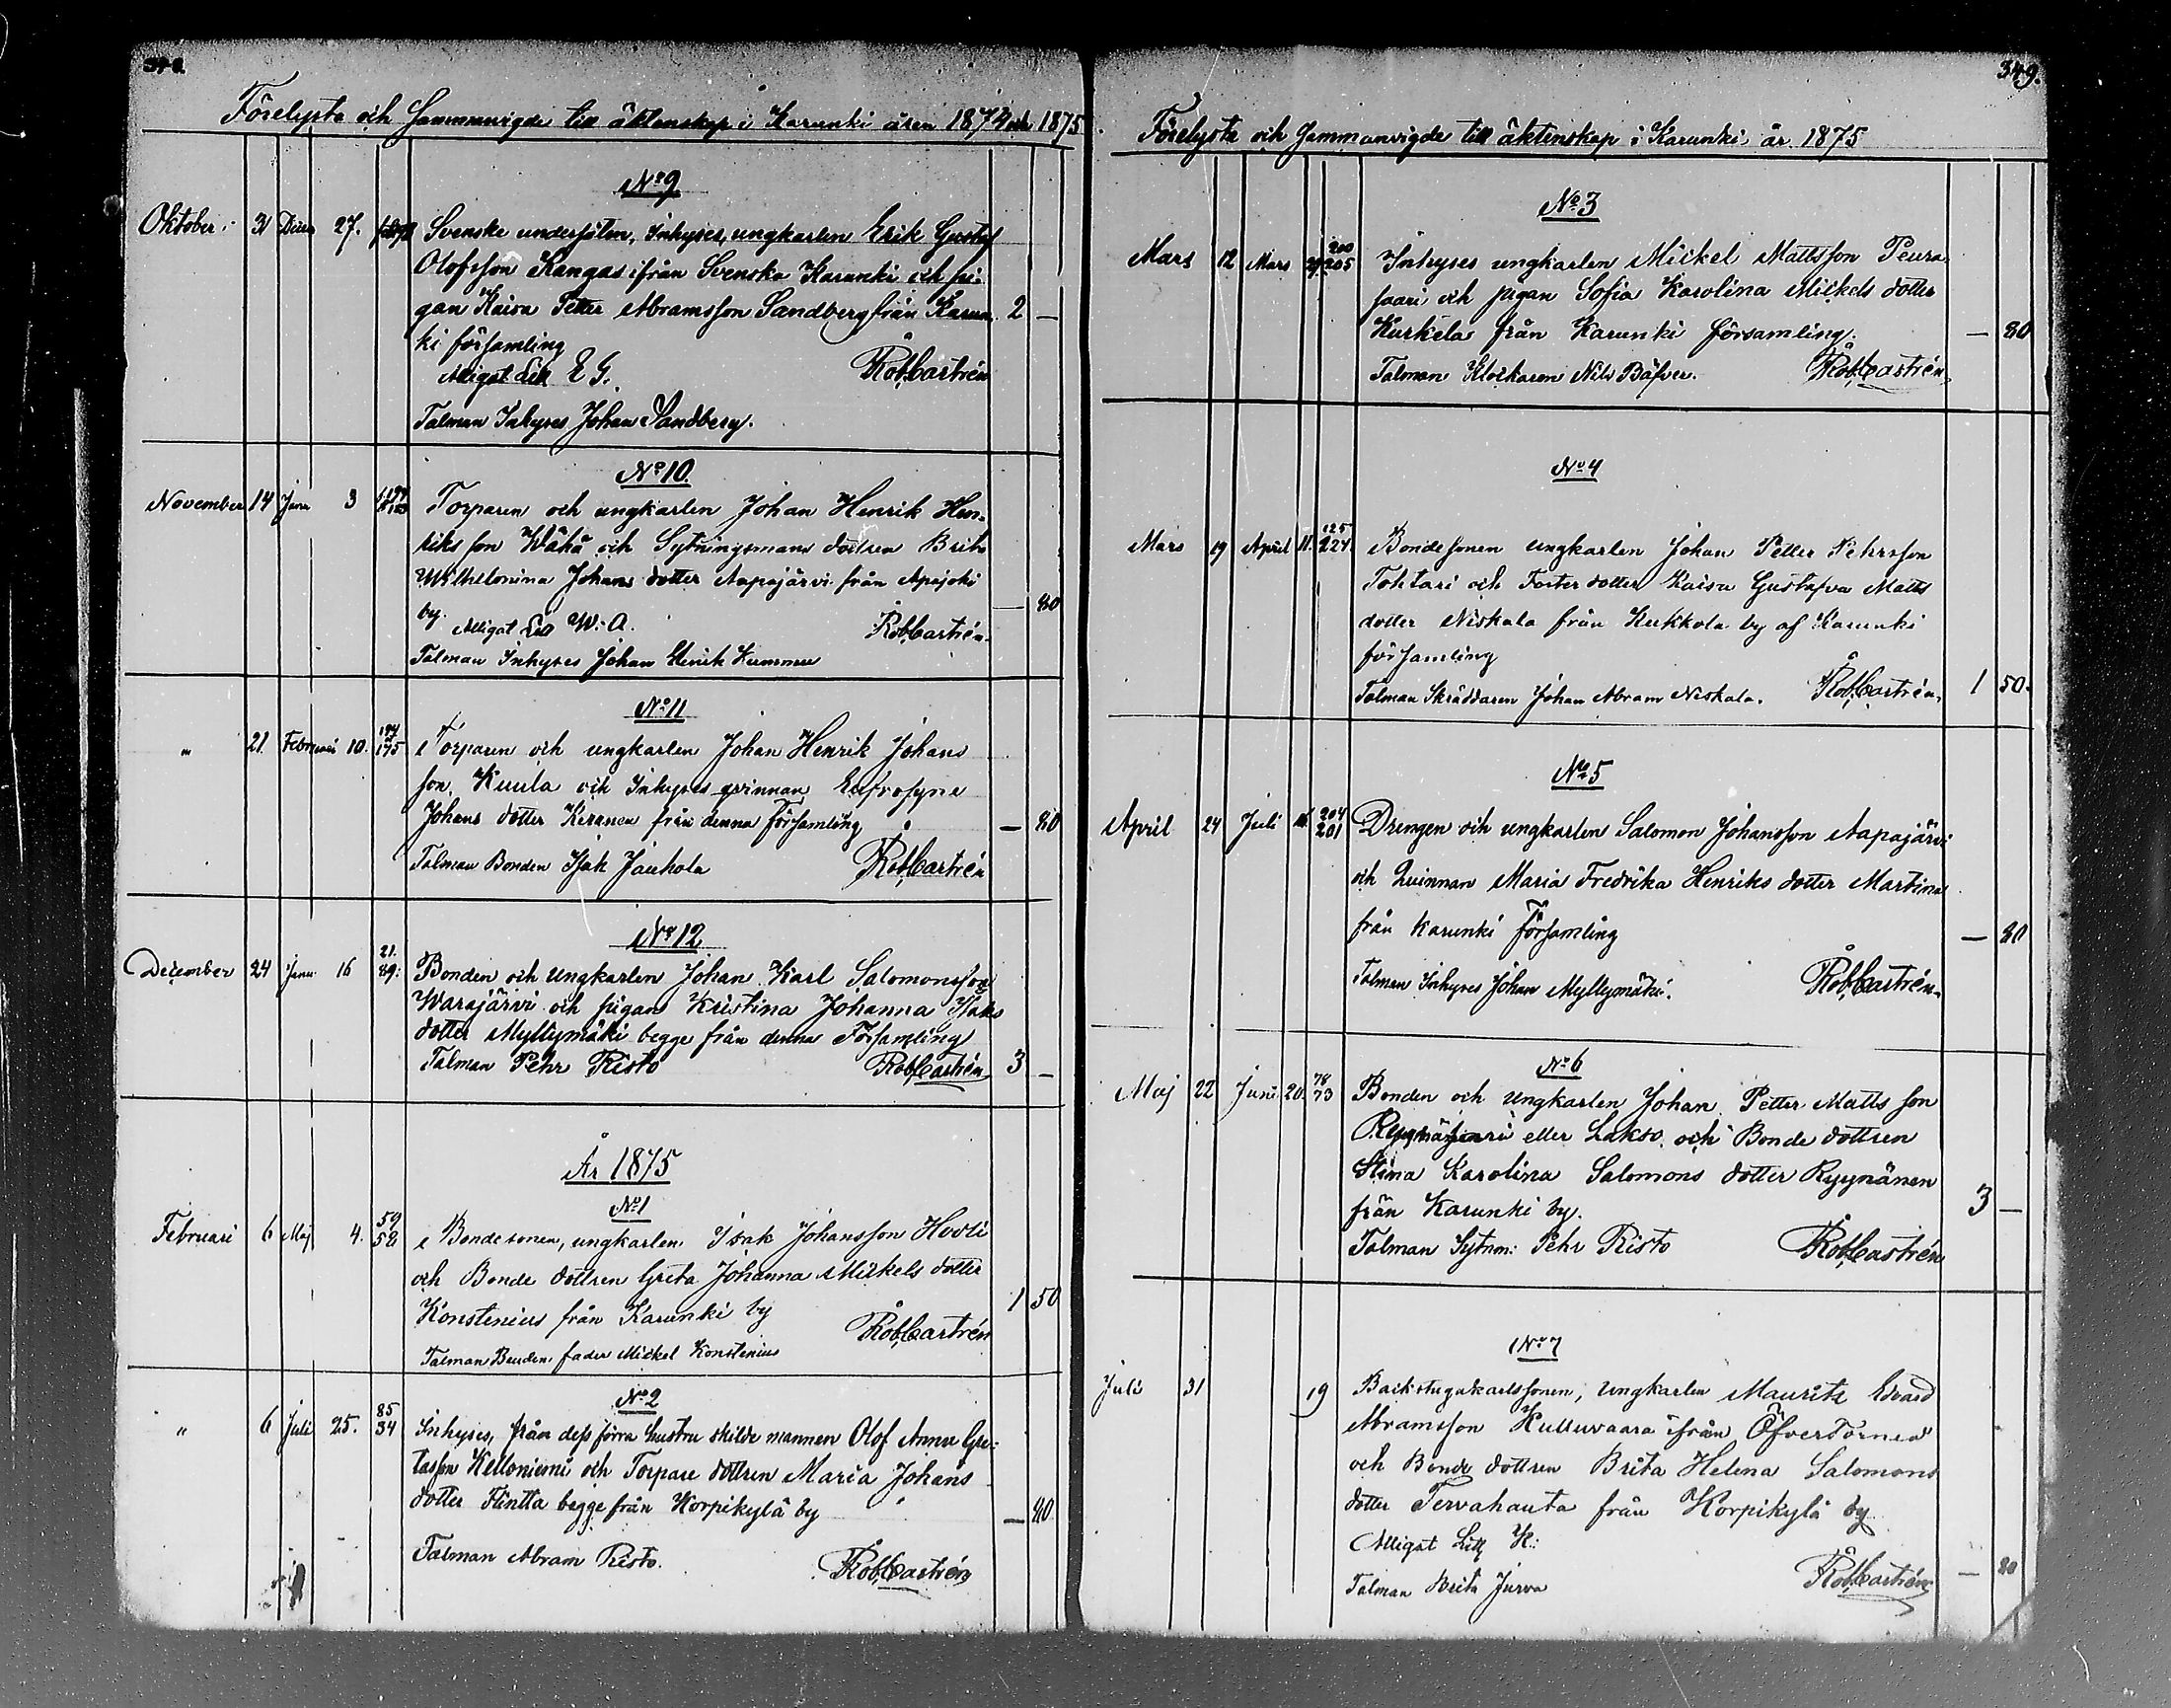 Förelysta och Sammanvigde till äktenskap i Karunki åren 1874 och 1875
No 9
Oktober 31 Decem 27. Svenske undersåten, Inhyses, ungkarlen Erik Gustaf
Olofsson Kangas ifrån Svenska Karunki och pi-
gan Kaisa Petter Abramsson Sandberg från Karun- 2 —
ki församling
Alligat Litt E G. Rob Castrén
Talman Inhyses Johan Sandberg.
No 10.
November 14 Janu 3 Torparen och ungkarlen Johan Henrik Hen-
riksson Wähä och Sytningsmans dottren Brita
Wilhelmina Johans dotter Aapajärvi från Apajoki
by. — 80
Alligat Litt W: A. Rob Castrén
Talman Inhyses Johan Henrik Kummu
No 11
" 21. Februari 10. 194 175 Torparen och ungkarlen Johan Henrik Johans
son Kuula och Inhyses qvinnan Eufrosyne
Johans dotter Keränen från denna Församling — 80
Talman Bonden Isak Jaukola Rob Castrén
No 12
December 24 Janu 16 21. 89: Bonden och ungkarlen Johan Karl Salomonsson
Warajärvi och pigan Kristina Johanna Isaks
dotter Myllymäki begge från denna Församling
Talman Pehr Risto Rob Castrén 3 —
År 1875
No 1
Februari 6 Maj 4. 59 58 Bondesonen, ungkarlen Isak Johansson Hooli
och Bonde dottren Greta Johanna Mickels dotter
Konstenius från Karunki by 1 50
Rob Castrén
Talman Brudens fader Mickel Konstenius
No 2
" 6 Juli 25. 85 34 Inhyses, från dess förra hustru skilde mannen Olof Anna Gre-
tasson Kelloniemi och Torpare dottren Maria Johans
dotter Flintta begge från Korpikylä by — 80
Talman Abram Risto. Rob Castrén
349.
Förelysta och Sammanvigde till äktenskap i Karunki år 1875
No 3
Mars 12 Mars 29. 200 205 Inhyses ungkarlen Mickel Mattsson Peura-
saari och pigan Sofia Karolina Mickels dotter
Kurkela från Karunki församling. — 80
Talman Klockaren Nils Bäfver. Rob Castrén
No 4
Mars 19 April 11. 125 224 Bondesonen ungkarlen Johan Petter Pehrsson
Tohtari och Fosterdotter Kaisa Gustafva Matts
dotter Niskala från Kukkola by af Karunki
församling
Talman Skräddaren Johan Abram Niskala. Rob Castrén 1 50.
No 5
April 24 Juli 204 201 Drengen och ungkarlen Salomon Johansson Aapajärvi
och Quinnan Maria Fredrika Henriks dotter Martina
från Karunki Församling — 80
Talman Inhyses Johan Myllymäki. Rob Castrén
No 6
Maj 22 Juni 20. 78 73 Bonden och ungkarlen Johan Petter Mattsson
eller Lakso och Bonde dottren
Stina Karolina Salomons dotter Ryynänen
från Karunki by. 3 —
Talman Sytnm: Pehr Risto Rob Castrén
No 7
Juli 31 19 Backstugukarlssonen, ungkarlen Mauritz Edvard
Abramsson Kulluvaara ifrån Öfvertorneå
och Bonde dottren Brita Helena Salomons
dotter Tervahauta från Korpikylä by
Alligat Litt K:
Talman Brita Jurva Rob Castrén — 80